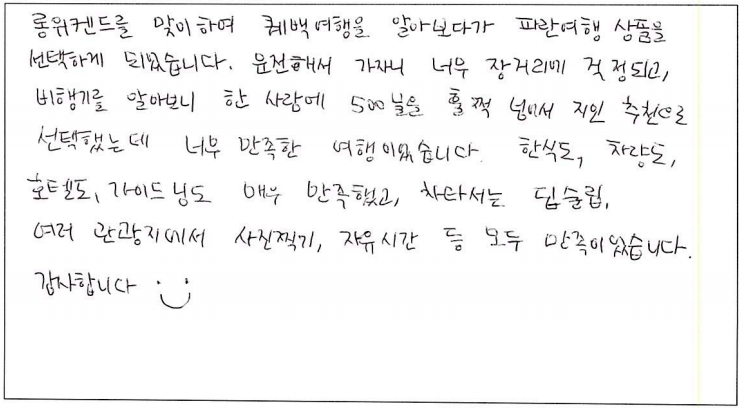 롱위켄드를 맞이하여 퀘백여행을 알아보다가 파란여행 상품을
선택하게 되었습니다. 운전해서 가자니 너무 장거리에 걱정되고,
비행기를 알아보니 한 사람에 500불을 훌쩍 넘어서 지인 추천으로
선택했는데 너무 만족한 여행이었습니다. 한식도, 차량도,
호텔도, 가이드님도 매우 만족했고, 차타서는 딥슬립,
여러 관광지에서 사진찍기, 자유시간 등 모두 만족이었습니다.
감사합니다